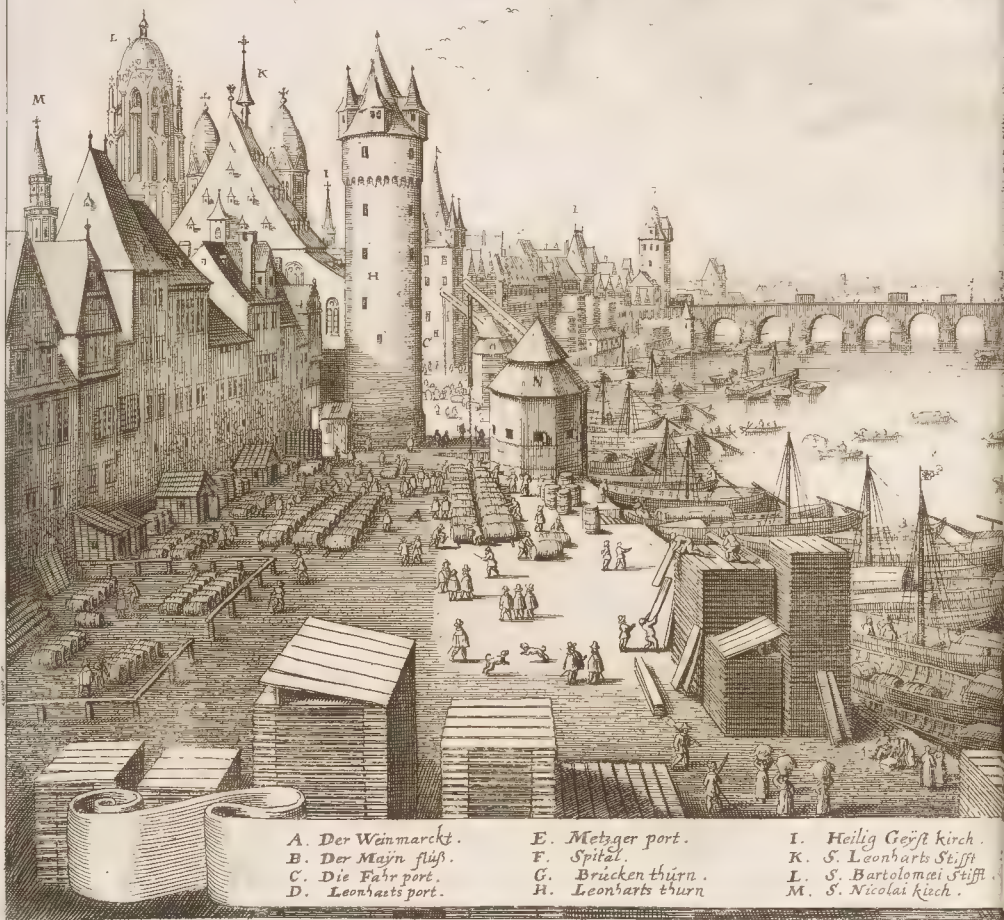 L
K
M
I
H
I
C
N
A. Der Weinmarckt.
B. Der Maÿn flüß.
C. Die Fahr port.
D. Leonharts port.
E. Metzger port.
F. Spital.
G. Brücken thürn.
H. Leonharts thurn
I. Heilig Geÿst kirch.
K. S. Leonharts Stifft
L. S. Bartolomæi Stifft.
M. S. Nicolai kirch.